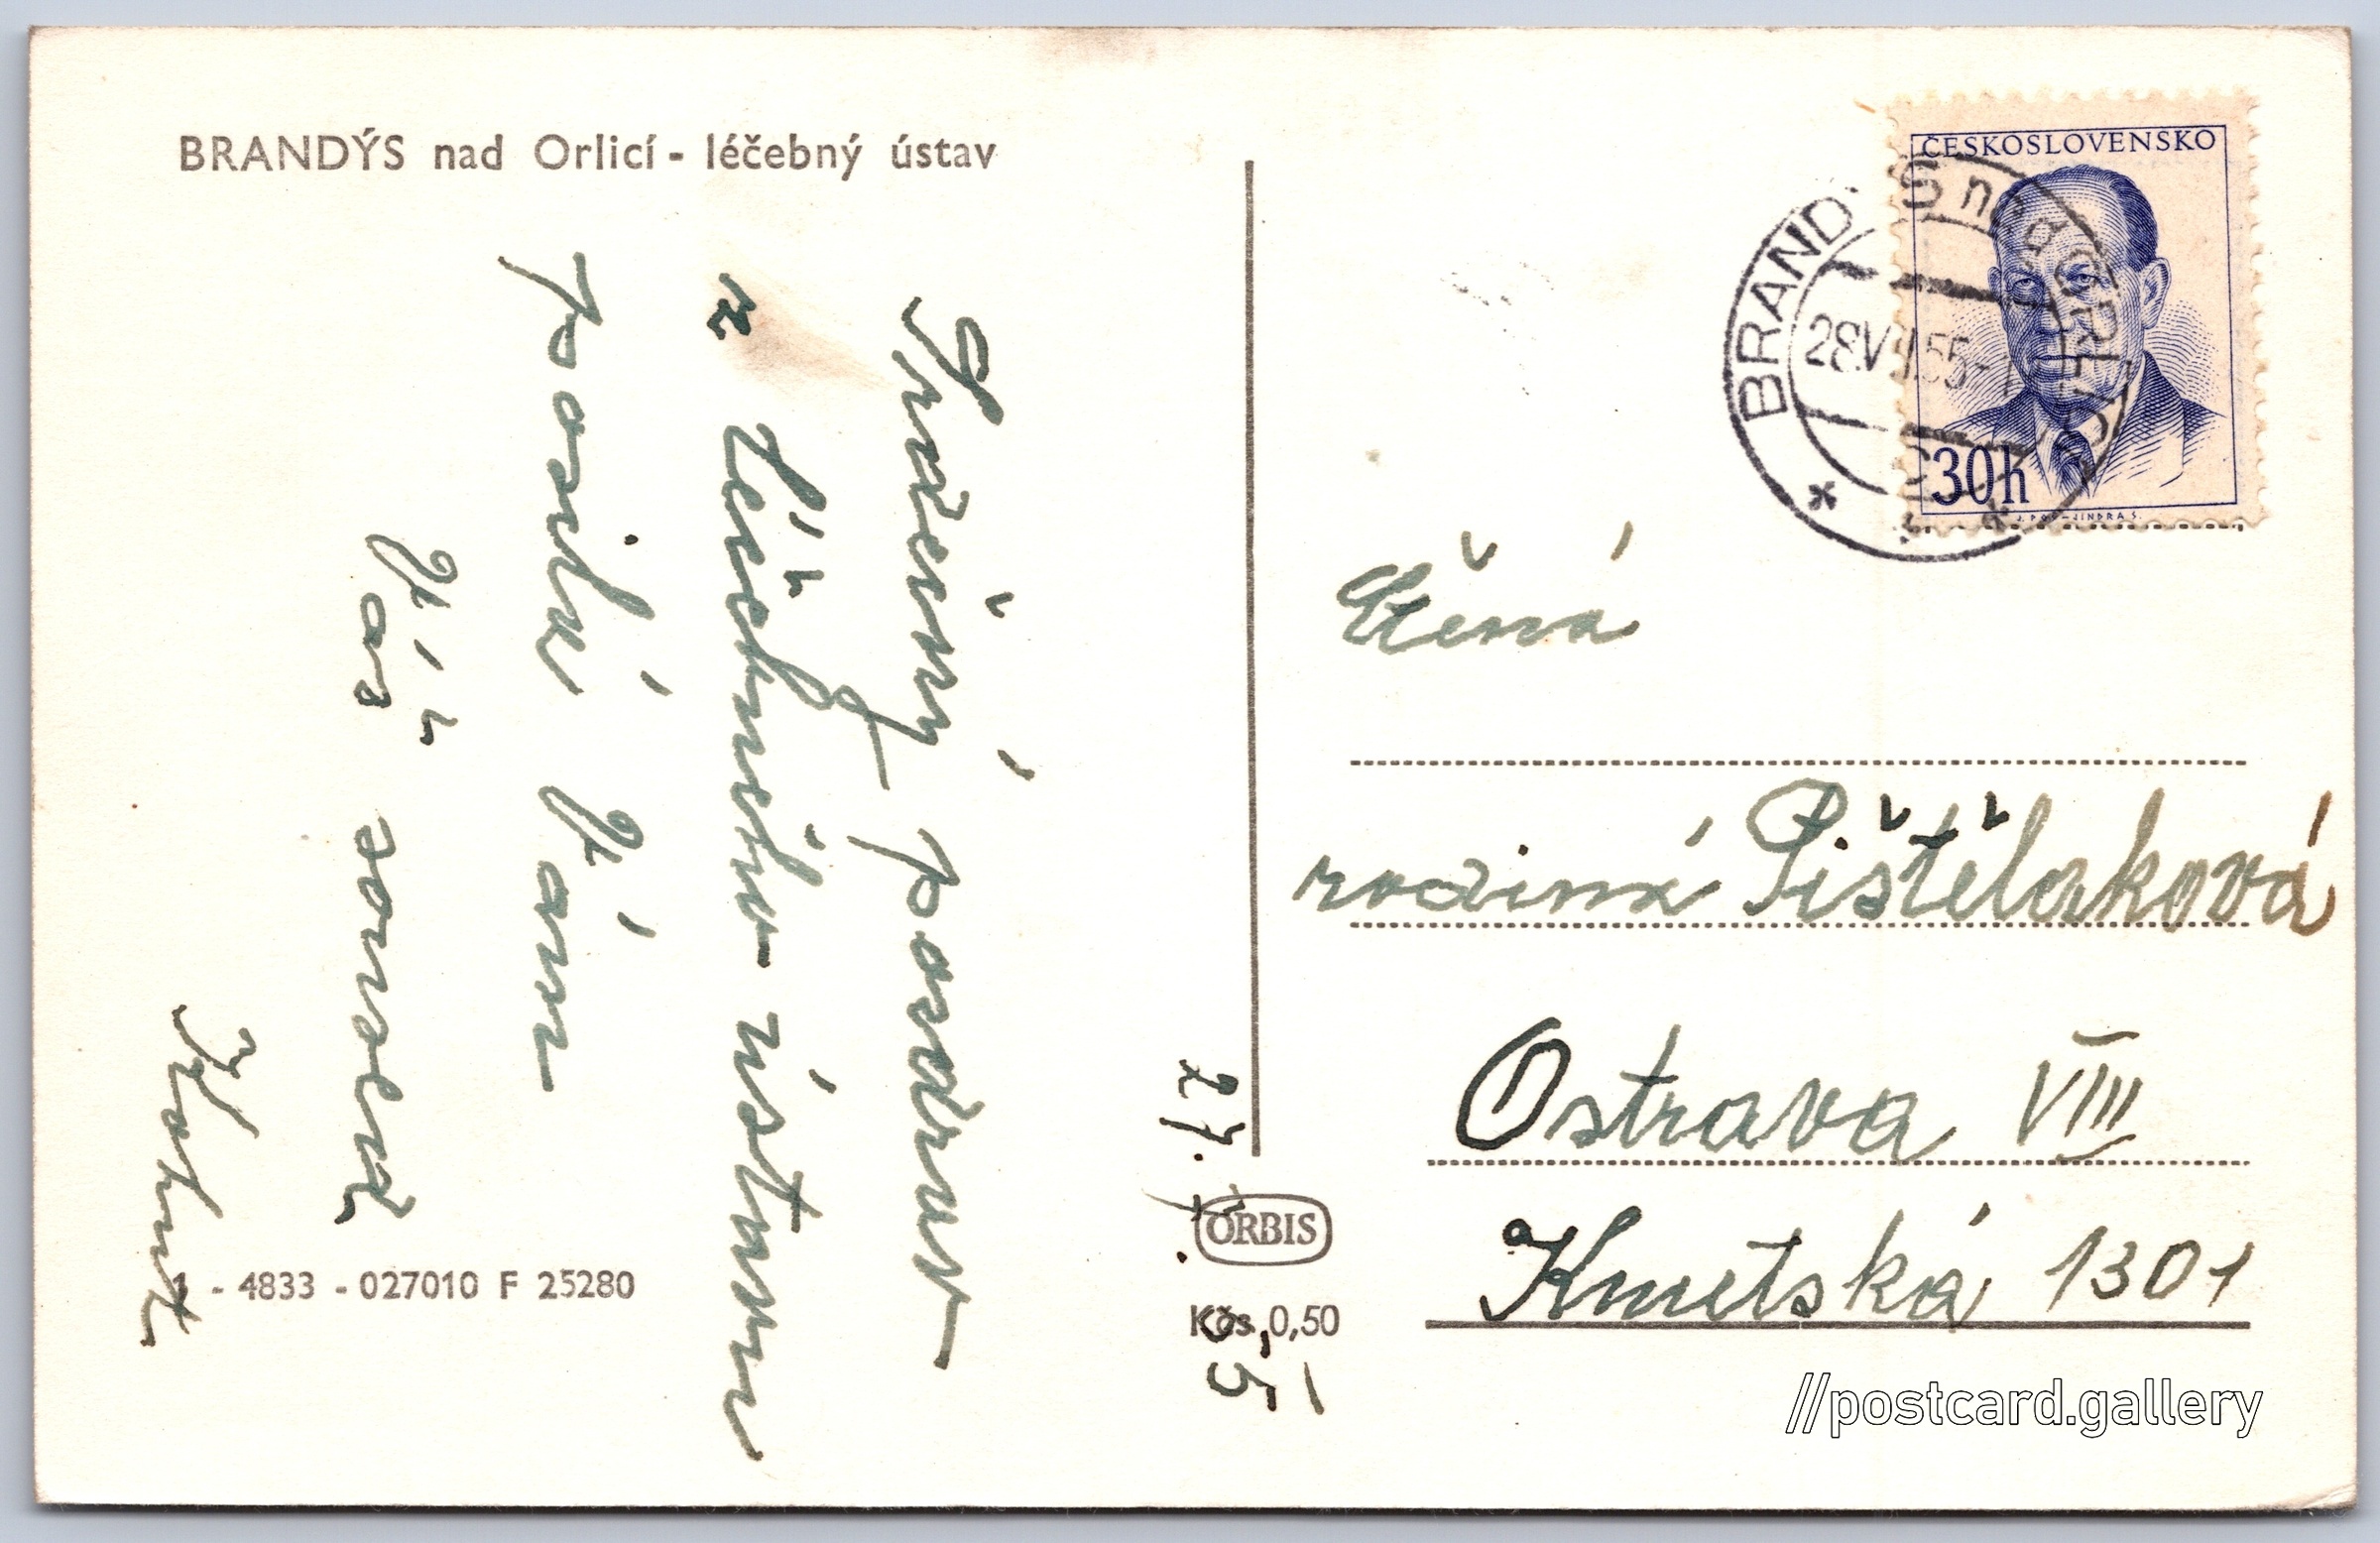 BRANDÝS nad Orlicí - léčebný ústav
Srdečný pozdrav
z Léčebného ústavu
posílá Vám
Váš soused
27. 7. 55
1 - 4833 - 027010 F 25280
ORBIS
Kčs 0,50
ČESKOSLOVENSKO
30h
BRANDÝS nad ORLICÍ
28.VII.55
Ctěná
rodina Pištěláková
Ostrava VIII
Kmetská 1301
//postcard.gallery